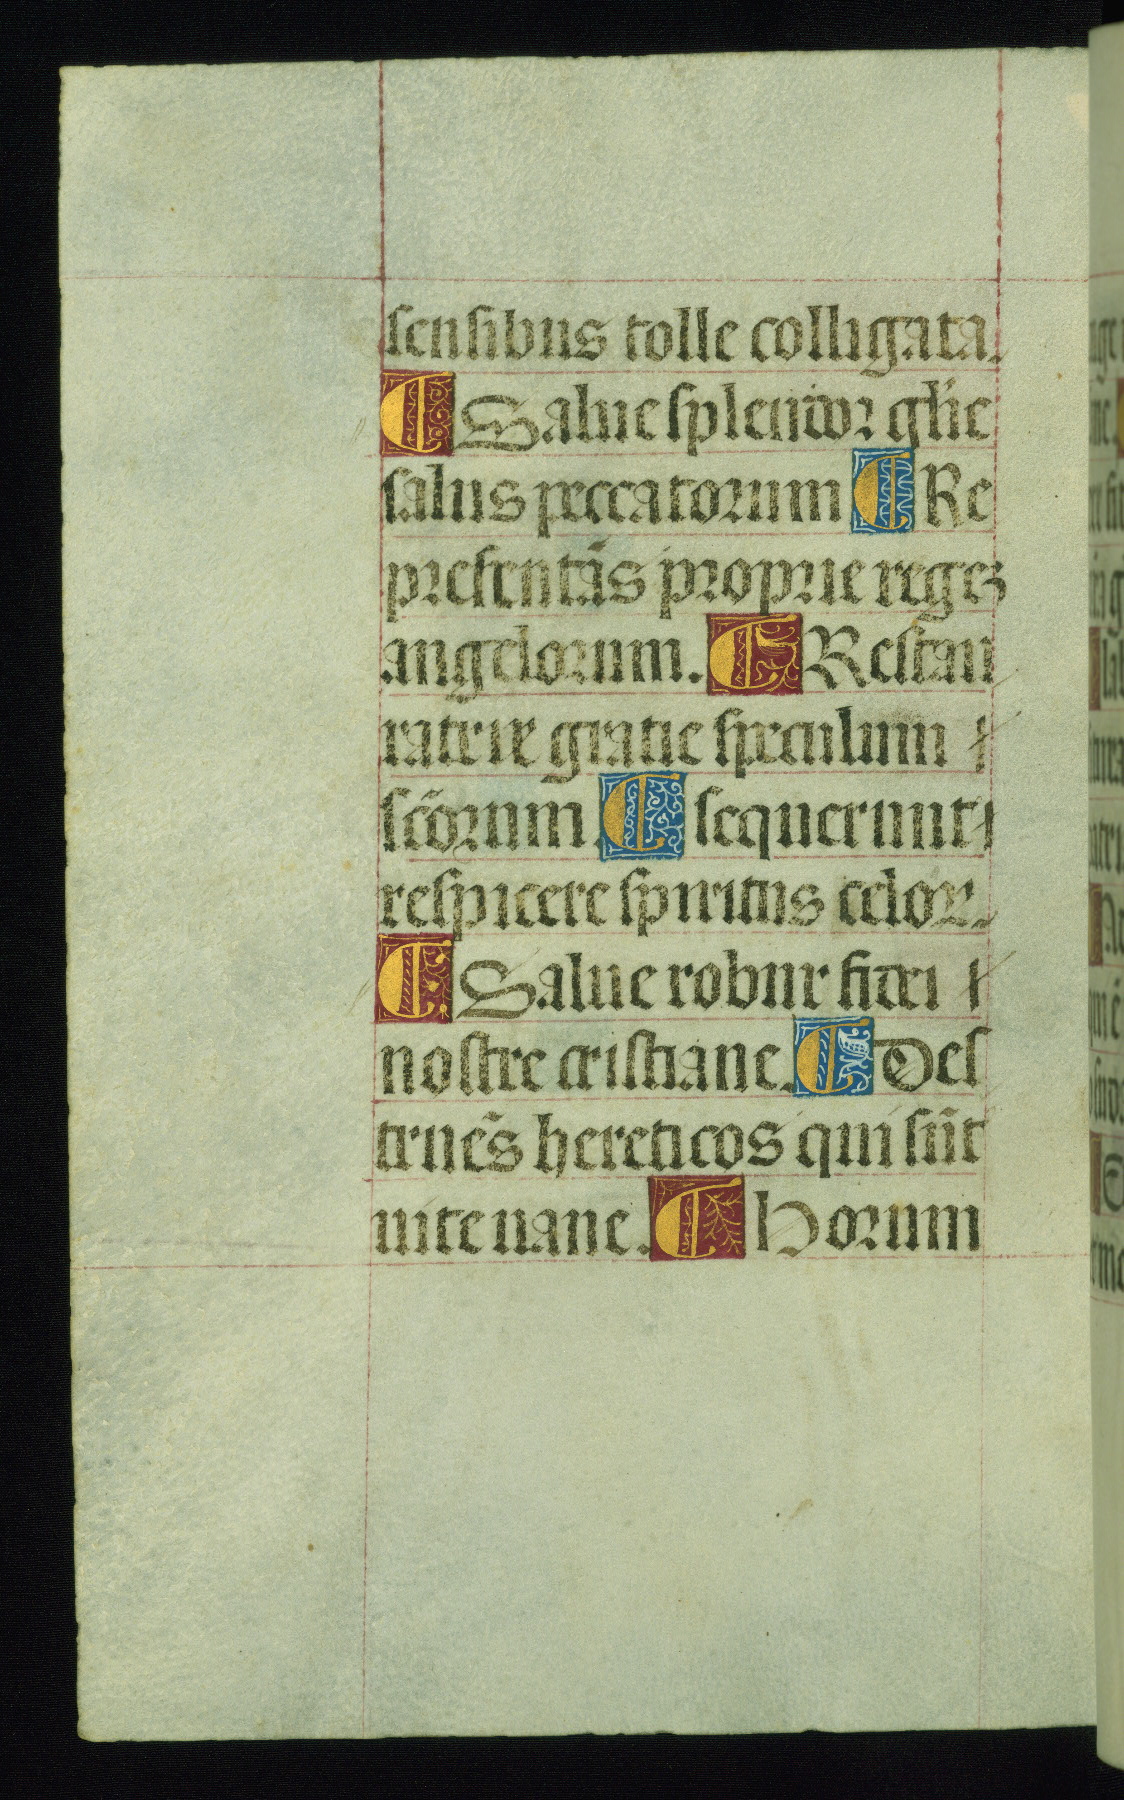 sensibus tolle colligata.
¶ Salue splendor gl̃ie
salus peccatorum ¶ Re
presentãs proprie regez
angelorum. ¶ Restau
ratrix gratie speculum
sc̃orum. ¶ sequerunt
respicere spiritus celoꝝ.
¶ Salue robur fidei
nostre cristiane. ¶ Des
truẽs hereticos qui sũt
mite uane. ¶ Horum